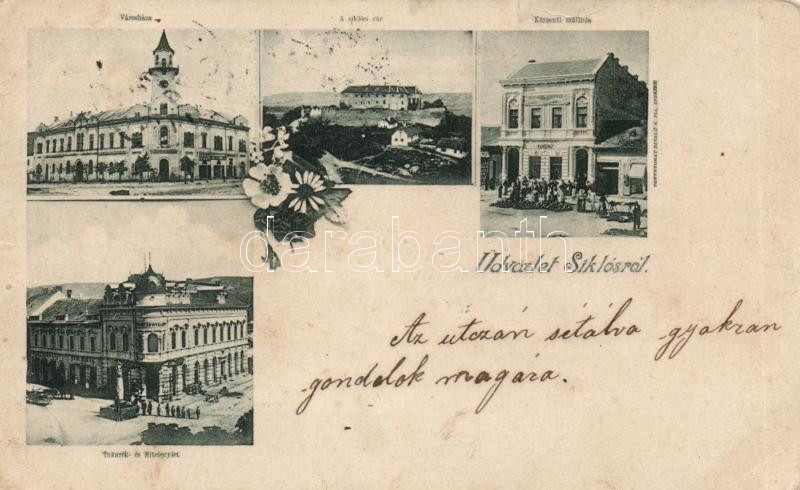 Városháza
A siklósi vár
Központi szálloda
darabanth.com
Üdvözlet Siklósról.
Az utczán sétálva gyakran
gondolok magára.
Takarék- és Hitelegylet